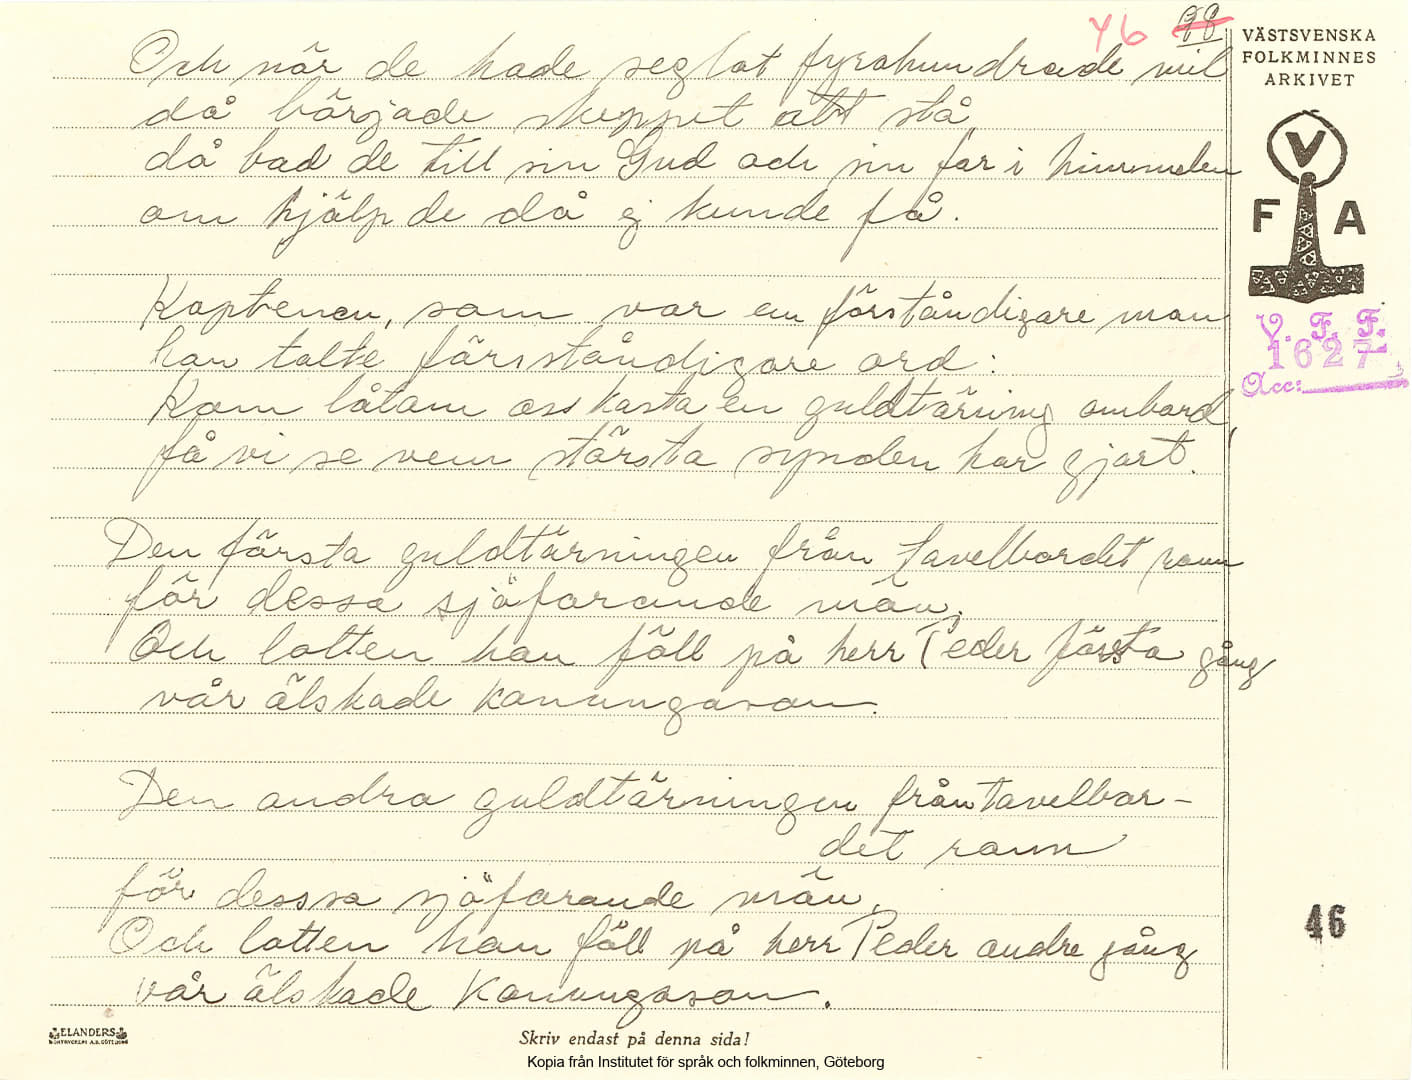 46 98
Och när de hade seglat fyrahundrade mil
då började skeppet att stå
då bad de till sin Gud och sin far i himmelen
om hjälp de då ej kunde få.
Kaptenen, som var en förståndigare man
han talte försståndigare ord:
Kom låtom oss kasta en guldtärning ombord,
få vi se vem största synden har gjort.
Den första guldtärningen från tavelbordet rann
för dessa sjöfarande män.
Och lotten han föll på herr Peder första gång
vår älskade konungason.
Den andra guldtärningen från tavelbor-
det rann
för dessa sjöfarande män.
Och lotten han föll på herr Peder andre gång
vår älskade Konungason.
VÄSTSVENSKA
FOLKMINNES
ARKIVET
V
F A
V. F. F.
1627
Acc:
46
ELANDERS
BOKTRYCKERI A.B. GÖTEBORG
Skriv endast på denna sida!
Kopia från Institutet för språk och folkminnen, Göteborg